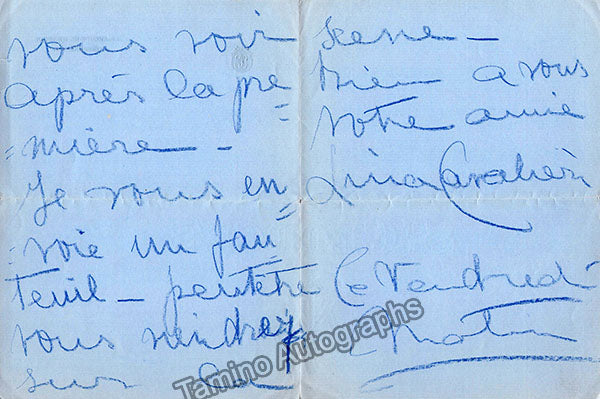 vous voir
après la pre=
=mière –
Je vous en=
=voie un fau=
teuil – peutêtre
vous viendrez
sur la
scene –
bien a vous
votre amie
Lina Cavalieri
Ce Vendredi
Matin
Tamino Autographs